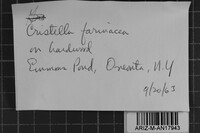 Cristella farinacea
on hardwood
Emmons Pond, Oneonta, N.Y
9/20/63
ARIZ-M-AN17943